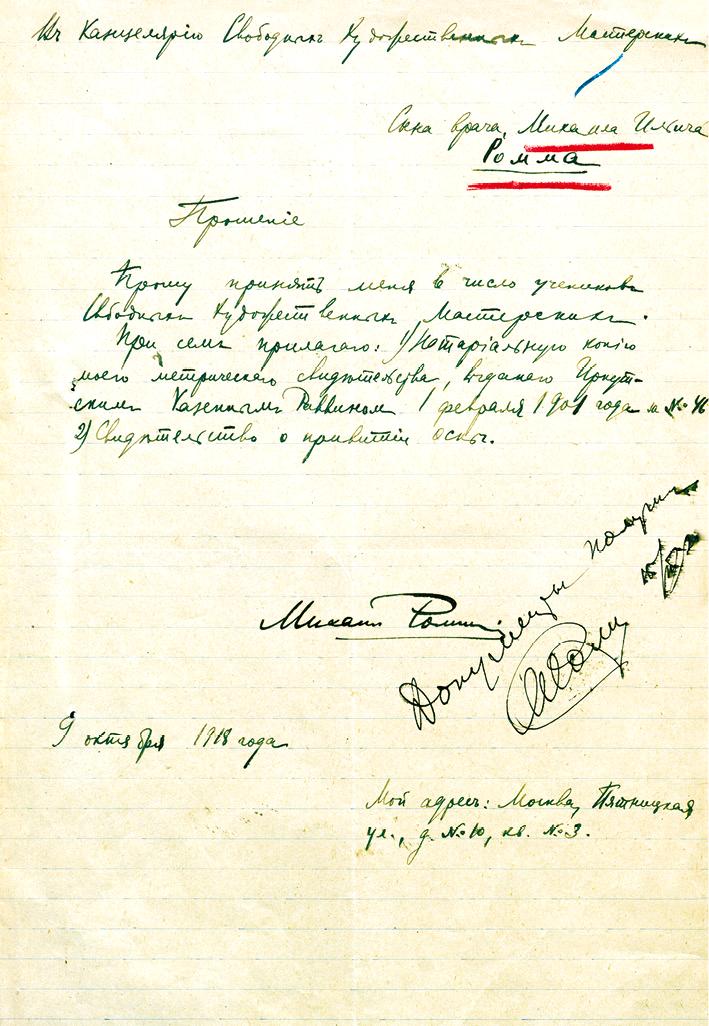 Въ Канцелярію Свободныхъ Художественныхъ Мастерскихъ
Сына врача, Михаила Ильича
Ромма
Прошеніе
Прошу принять меня в число учениковъ
Свободныхъ Художественныхъ Мастерскихъ.
При семъ прилагаю: 1) Нотаріальную копію
моего метрическаго свидѣтельства, выданаго Иркут-
скимъ Казеннымъ Раввиномъ 1 февраля 1901 года за № 46
2) Свидѣтельство о привитіи оспы.
Документы получилъ
Михаил Ромм
МРомм
9 октября 1918 года
Мой адресъ: Москва, Пятницкая
ул., д. №10, кв. №3.